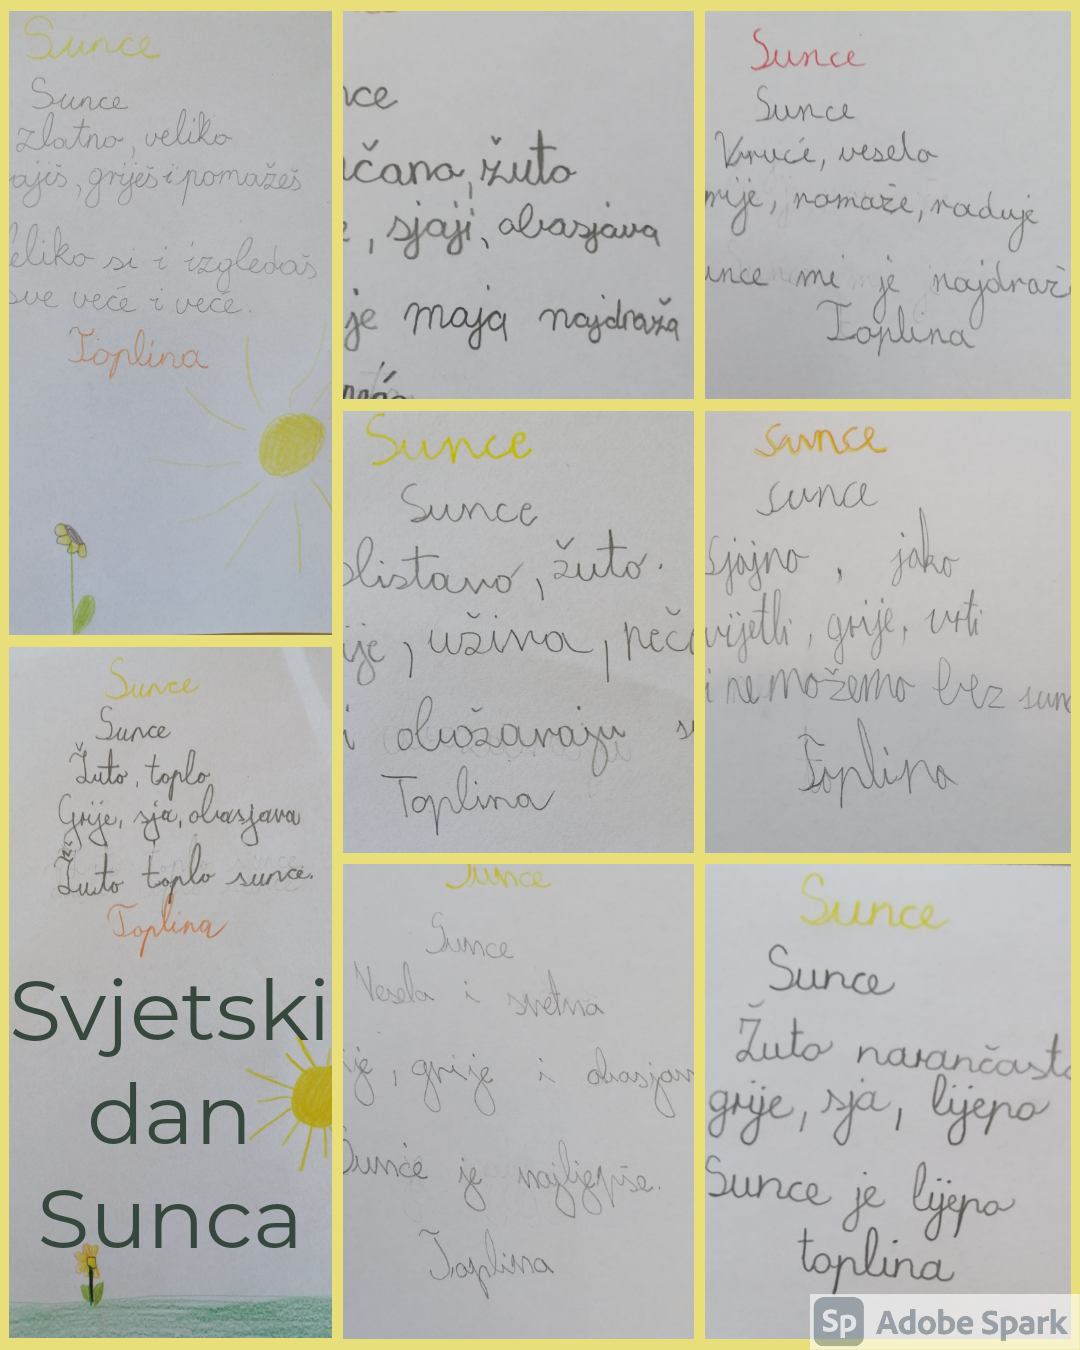 Sunce
Sunce
zlatno, veliko
ajiš, griješ i pomažeš
eliko si i izgledaš
sve veće i veće.
Toplina
nce
nčana, žuto
e, sjaji, obasjava
je moja najdraža
Sunce
Sunce
Vruće, veselo
rije, pomaže, raduje
unce mi je najdraž
Toplina
Sunce
Sunce
blistavo, žuto.
ije, uživa, peč
i obožavaju s
Toplina
Sunce
sunce
Sjajno, jako
vijetli, grije, vrti
i ne možemo bez sun
Toplina
Sunce
Sunce
Žuto, toplo
Grije, sja, obasjava
Žuto toplo sunce.
Toplina
Svjetski
dan
Sunca
Sunce
Sunce
Vesela i sretna
ije, grije i obasjav
Sunce je najljepše.
Toplina
Sunce
Sunce
Žuto narančasto
grije, sja, lijepo
Sunce je lijepo
toplina
Sp Adobe Spark